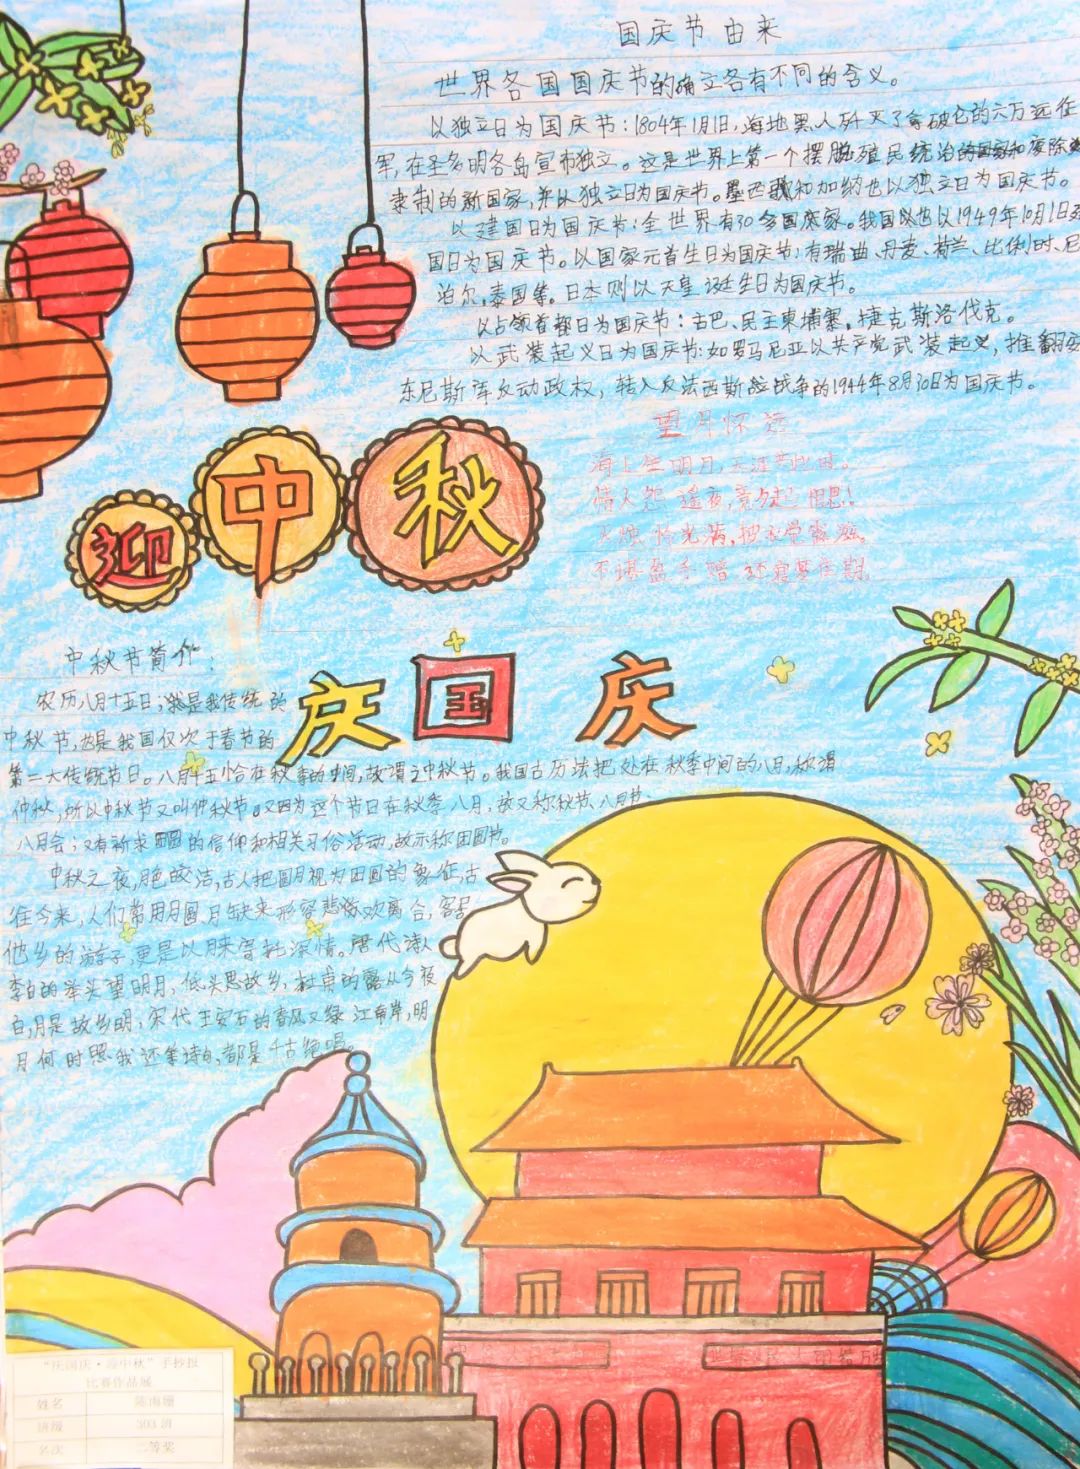 国庆节由来
世界各国国庆节的确立各有不同的含义。
以独立日为国庆节：1804年1月1日，海地黑人歼灭了拿破仑的六万远征
军，在圣多明各岛宣布独立。这是世界上第一个摆脱殖民统治的国家和废除
隶制的新国家，并以独立日为国庆节。墨西歌和加纳也以独立日为国庆节。
以建国日为国庆节：全世界有30多国家。我国以也以1949年10月1日
国日为国庆节。以国家元首生日为国庆节：有瑞典、丹麦、荷兰、比利时、尼
泊尔、泰国等。日本则以天皇诞生日为国庆节。
以占领首都日为国庆节：古巴、民主柬埔寨、捷克斯洛伐克。
以武装起义日为国庆节：如罗马尼亚以共产党武装起义，推翻
东尼斯库反动政权，转入反法西斯战争的1944年8月30日为国庆节。
望月怀远
海上生明月，天涯共此时。
情人怨遥夜，竟夕起相思！
灭烛怜光满，披衣觉露滋。
不堪盈手赠，还寝梦佳期。
迎中秋
庆国庆
中秋节简介：
农历八月十五日；是我传统的
中秋节，也是我国仅次于春节的
第二大传统节日。八月十五恰在秋季的中间，故谓之中秋节。我国古历法把处在秋季中间的八月，称谓
仲秋，所以中秋节又叫仲秋节。又因为这个节日在秋季、八月，故又称秋节、八月节、
八月会；又有祈求团圆的信仰和相关习俗活动，故亦称团圆节。
中秋之夜，月色皎洁，古人把圆月视为团圆的象征，古
往今来，人们常用月圆、月缺来形容悲欢离合，客居
他乡的游子，更是以月来寄托深情。唐代诗人
李白的举头望明月，低头思故乡，杜甫的露从今夜
白，月是故乡明；宋代王安石的春风又绿江南岸，明
月何时照我还等诗句，都是千古绝唱。
"庆国庆·迎中秋"手抄报
比赛作品展
姓名 陈雨珊
班级 303班
名次 二等奖